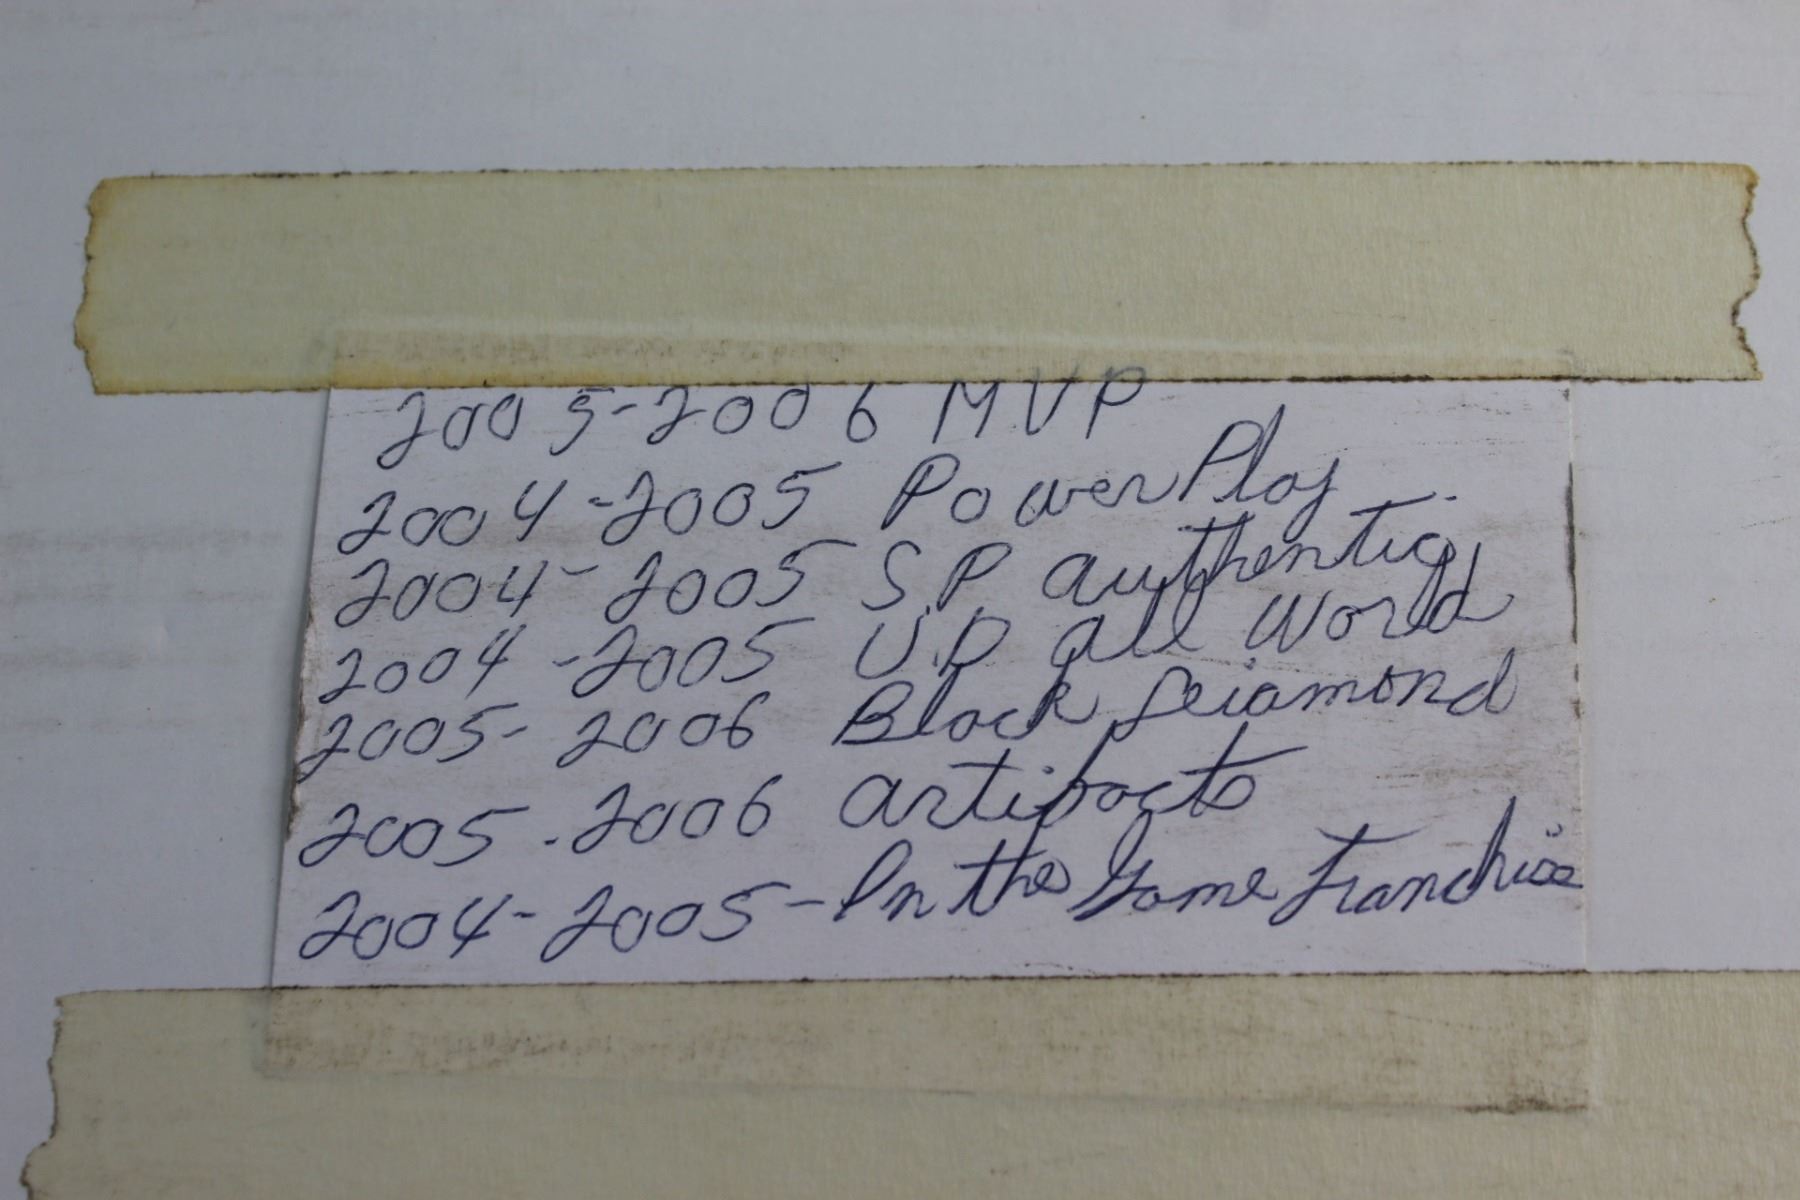 2005-2006 MVP
2004-2005 Power Play
2004-2005 SP Authentic
2004-2005 U.D all World
2005-2006 Black Diamond
2005-2006 artifacts
2004-2005-In the Game Franchise